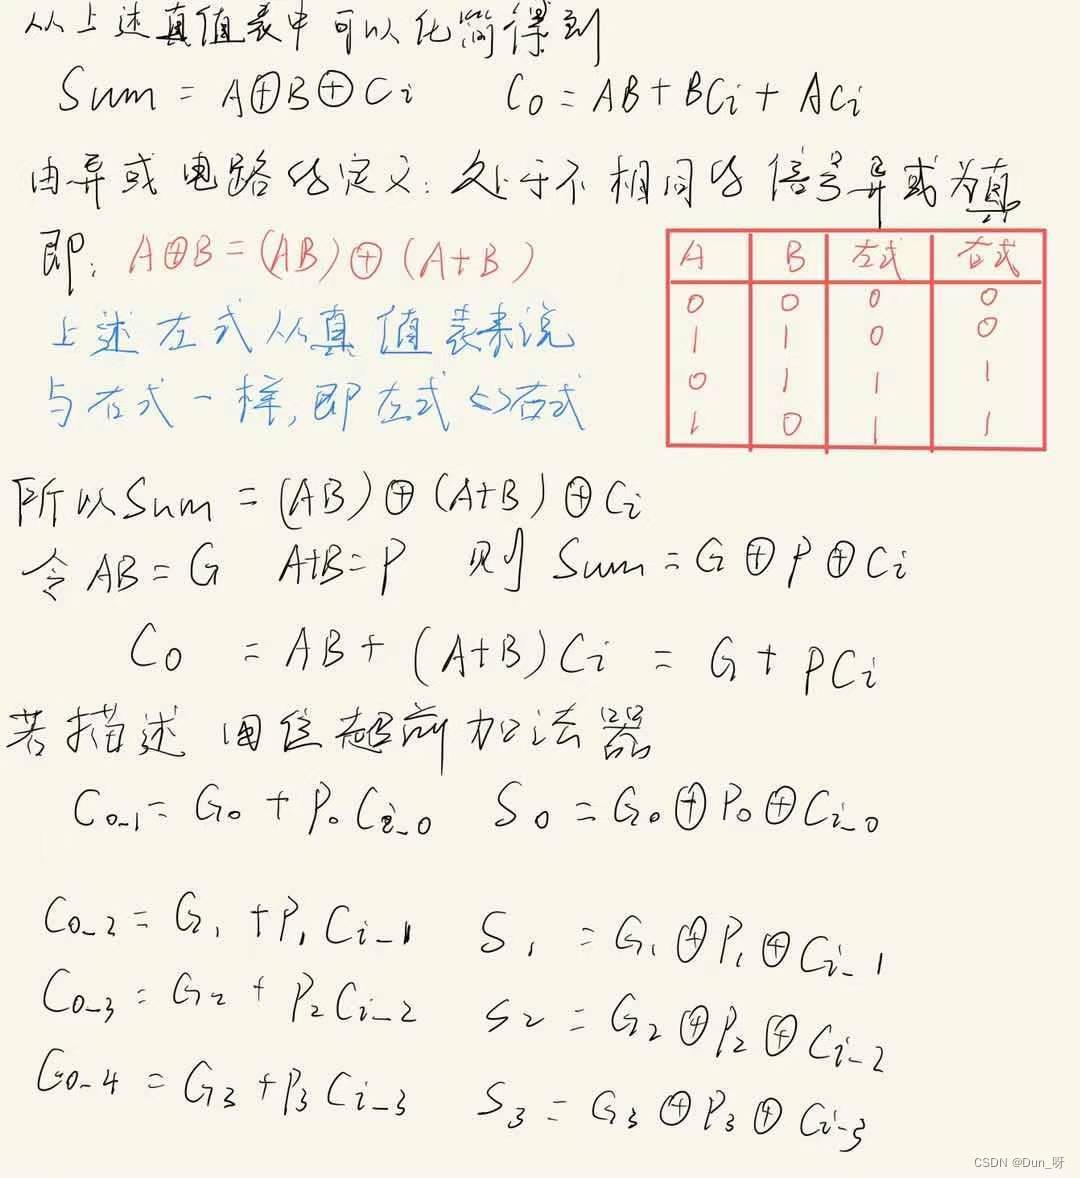 从上述真值表中可以化简得到
Sum = A⊕B⊕Ci Co = AB + BCi + ACi
由异或电路的定义：处于不相同的信号异或为真
即：A⊕B = (AB)⊕(A+B)
上述左式从真值表来说
与右式一样，即左式<=>右式
A B 左式 右式
0 0 0 0
1 1 0 0
0 1 1 1
1 0 1 1
所以Sum = (AB)⊕(A+B)⊕Ci
令AB = G A+B = P 则 Sum = G⊕P⊕Ci
Co = AB + (A+B)Ci = G + PCi
若描述四位超前加法器
Co_1 = G0 + P0Ci_0 S0 = G0⊕P0⊕Ci_0
Co_2 = G1 + P1Ci_1 S1 = G1⊕P1⊕Ci_1
Co_3 = G2 + P2Ci_2 S2 = G2⊕P2⊕Ci_2
Co_4 = G3 + P3Ci_3 S3 = G3⊕P3⊕Ci_3
CSDN @Dun_呀